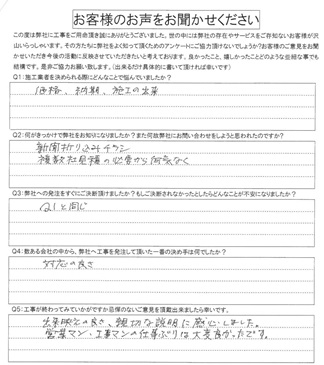 お客様のお声をお聞かせください
この度は弊社に工事をご用命頂き誠にありがとうございました。世の中には弊社の存在やサービスをご存知ないお客様が沢
山いらっしゃいます。その方たちに弊社をよく知って頂くためのアンケートにご協力頂けないでしょうか?お客様のご意見をお聞
かせいただき今後の活動に反映させていただきたいと考えております。良かったこと、嬉しかったことどのような些細な事でも
結構です。是非ご協力お願い致します。(出来るだけ具体的に書いて頂ければ幸いです)
Q1:施工業者を決められる際にどんなことで悩んでいましたか?
価格、納期、施工の出来
Q2:何がきっかけで弊社をお知りになりましたか?また何故弊社にお問い合わせをしようと思われたのですか?
新聞折り込みチラシ
複数社見積の必要から何気なく
Q3:弊社への発注をすぐにご決断頂けましたか?もしご決断されなかったとしたらどんなことが不安になりましたか?
Q1と同じ
Q4:数ある会社の中から、弊社へ工事を発注して頂いた一番の決め手は何でしたか?
対応の良さ
Q5:工事が終わってみていかがですか忌憚のないご意見を頂戴出来ましたら幸いです。
出来映えの良さ、親切な説明に感心しました。
営業マン・工事マンの仕事ぶりは大変良かったです。